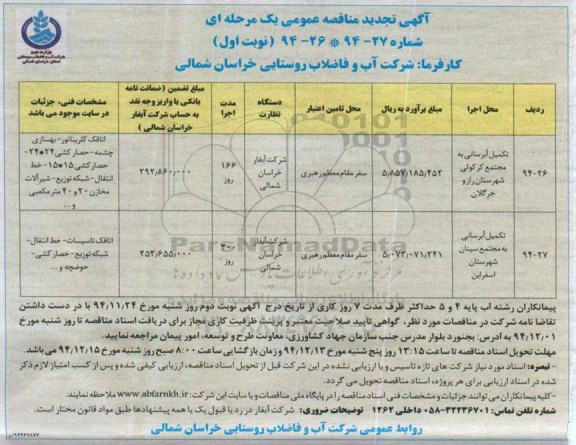 آگهی تجدید مناقصه عمومی یک مرحله ای
شماره ۲۷-۹۴ * ۲۶-۹۴ (نوبت اول)
کارفرما: شرکت آب و فاضلاب روستایی خراسان شمالی
ردیف
محل اجرا
مبلغ برآورد به ریال
محل تامین اعتبار
دستگاه نظارت
مدت اجرا
مبلغ تضمین (ضمانت نامه بانکی یا واریز وجه نقد به حساب شرکت آبفار خراسان شمالی)
مشخصات فنی، جزئیات در سایت موجود می باشد
۹۴-۲۶
تکمیل آبرسانی به مجتمع کرکولی شهرستان راز و جرگلان
۵٫۸۵۷٫۱۸۵٫۴۵۲
سفر مقام معظم رهبری
شرکت آبفار خراسان شمالی
۱۶۶ روز
۲۹۲٫۸۶۰٫۰۰۰
اتاقک کلریناتور-بهسازی چشمه-حصارکشی ۲۴*۲۴-حصارکشی ۱۵*۱۵-خط انتقال-شبکه توزیع-شیرآلات مخازن ۲۰ و ۴۰ مترمکعبی و ...
۹۴-۲۷
تکمیل آبرسانی به مجتمع سینان شهرستان اسفراین
۵٫۰۷۳٫۰۷۱٫۲۴۱
سفر مقام معظم رهبری
شرکت آبفار خراسان شمالی
روز
۲۵۳٫۶۵۵٫۰۰۰
اتاقک تاسیسات- خط انتقال-شبکه توزیع- حصار کشی-حوضچه و ...
پیمانکاران رشته آب پایه ۴ و ۵ حداکثر ظرف مدت ۷ روز کاری از تاریخ درج آگهی نوبت دوم روز شنبه مورخ ۹۴/۱۱/۲۴ با در دست داشتن
تقاضا نامه شرکت در مناقصات مورد نظر، گواهی تایید صلاحیت معتبر و پرینت ظرفیت کاری مجاز برای دریافت اسناد مناقصه تا روز شنبه مورخ
۹۴/۱۲/۰۱ به آدرس: بجنورد بلوار مدرس جنب سازمان جهاد کشاورزی، معاونت طرح و توسعه، امور پیمان مراجعه نمایید.
مهلت تحویل اسناد مناقصه تا ساعت ۱۳:۱۵ روز پنج شنبه مورخ ۹۴/۱۲/۱۳ و زمان بازگشایی ساعت ۸:۰۰ صبح روز شنبه مورخ ۹۴/۱۲/۱۵ می باشد.
- تبصره: اسناد مورد نیاز شرکت های تازه تاسیس و یا ارزیابی نشده در این شرکت قبل از تحویل اسناد مناقصه، ارزیابی کیفی شده و پس از کسب امتیاز لازم ذکر
شده در اسناد ارزیابی برای هر پروژه، اسناد مناقصه تحویل می گردد.
-کلیه پیمانکاران می توانند جزئیات و مشخصات فنی اسناد مناقصه را در پایگاه ملی مناقصات و یا سایت این شرکت: www.abfarnkh.ir ملاحظه نمایند.
شماره تلفن تماس: ۳۲۲۳۶۷۰۱-۰۵۸ داخلی ۱۲۶۲ توضیحات ضروری: شرکت آبفار در رد یا قبول یک یا همه پیشنهادها طبق مواد قانون مختار است.
روابط عمومی شرکت آب و فاضلاب روستایی خراسان شمالی